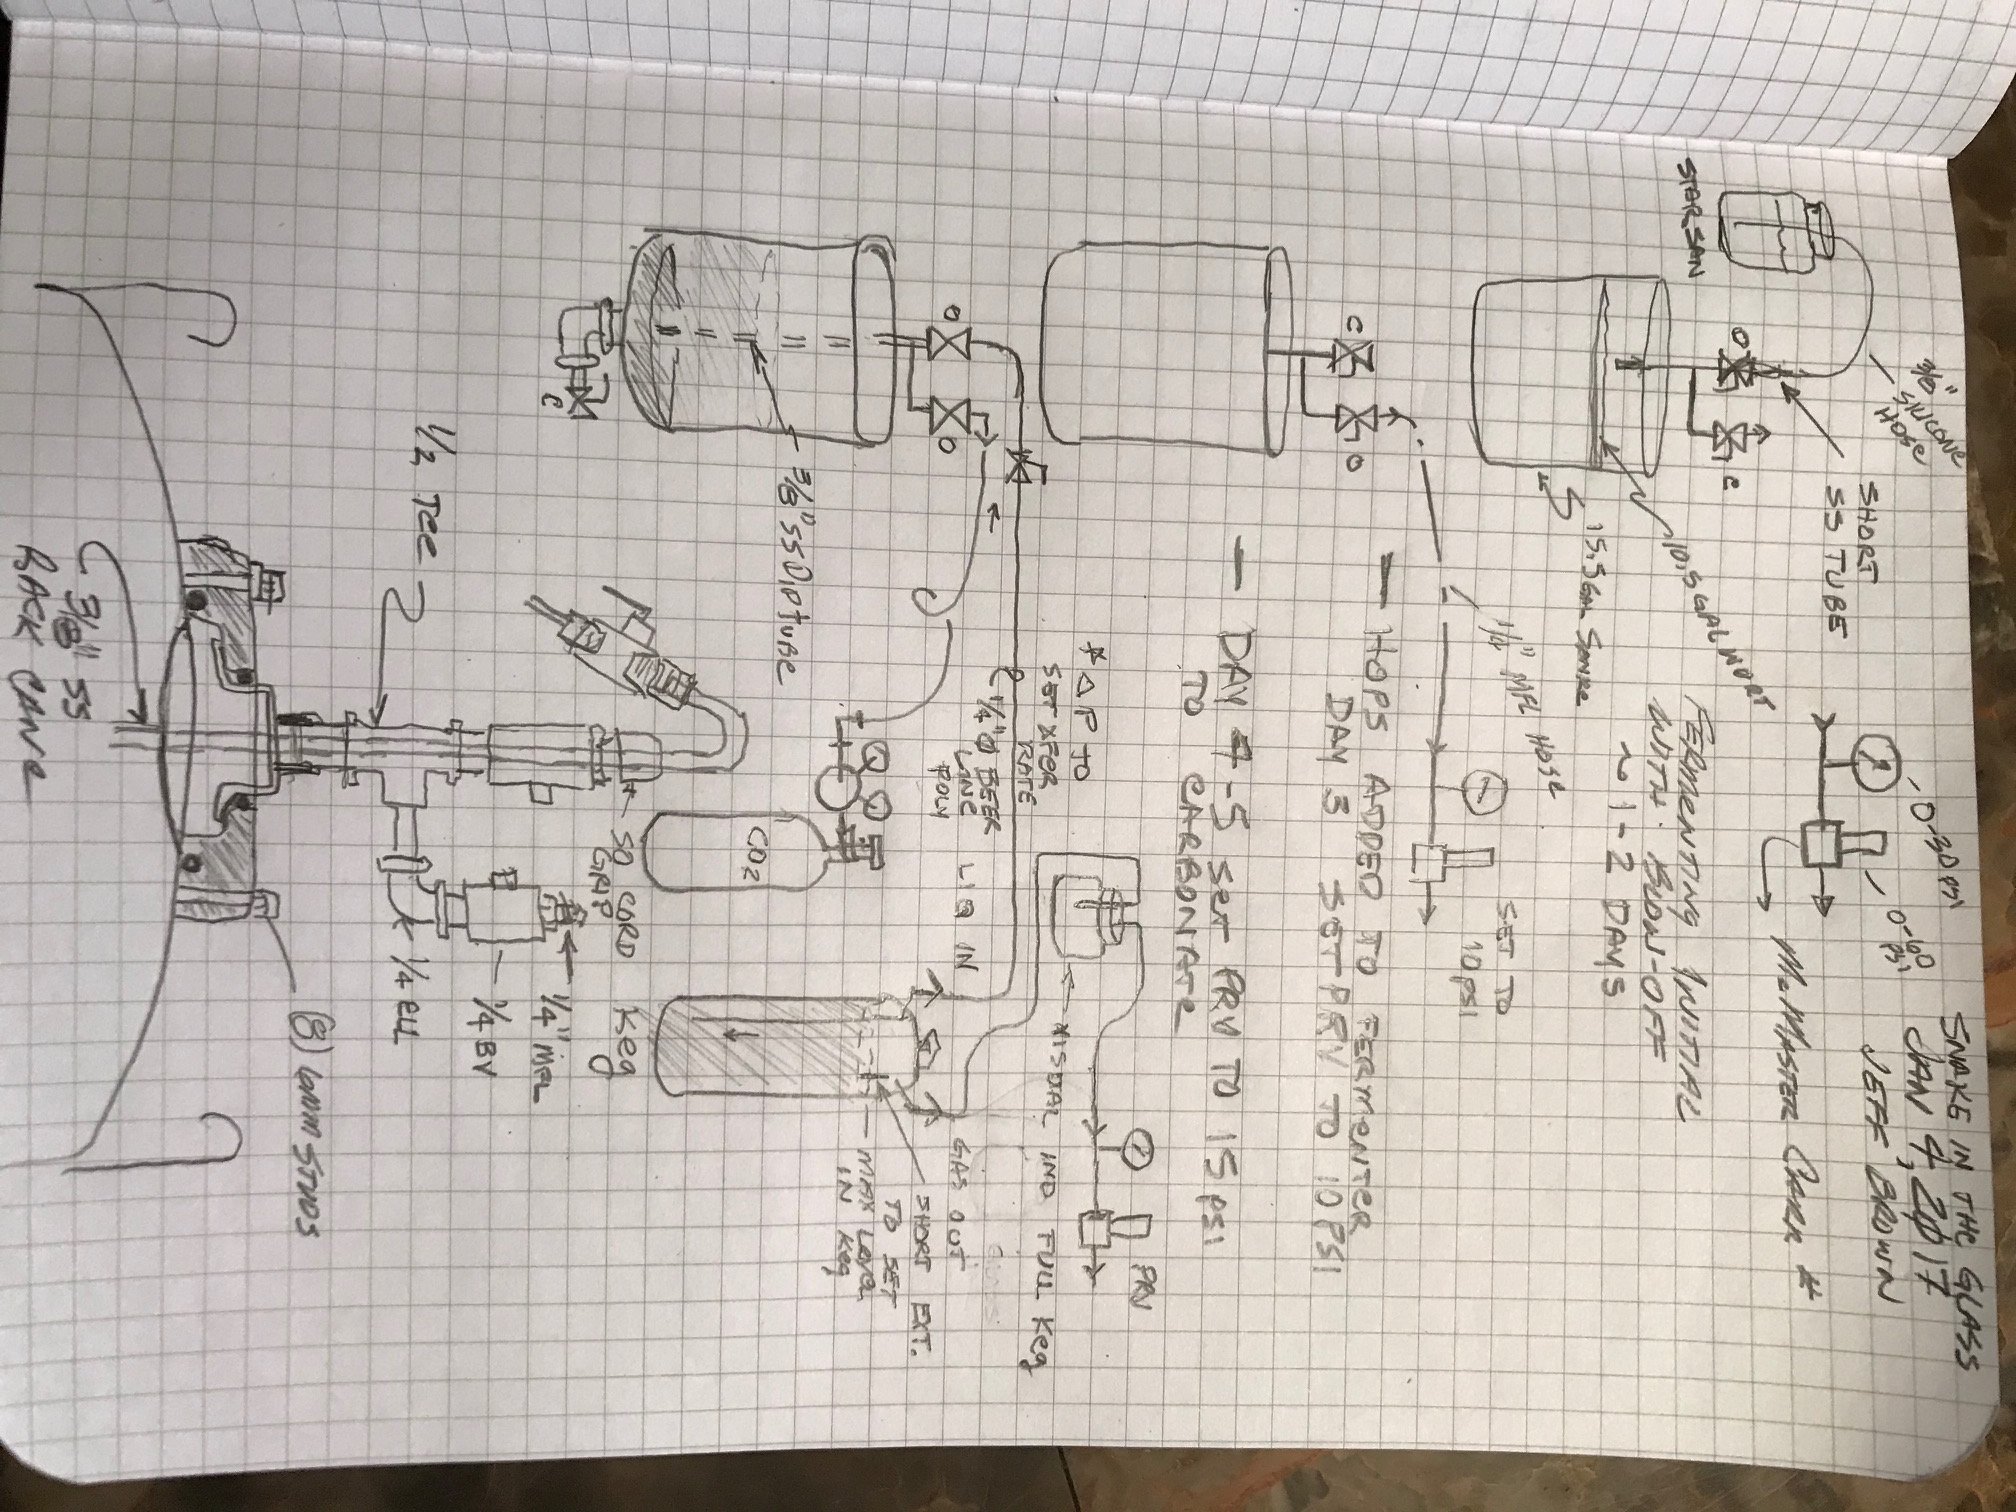 SNAKE IN THE GLASS
JAN 4, 2017
JEFF BROWN
STARSAN
SILICONE
HOSE
SHORT
SS TUBE
O
C
10.5 GAL WORT
15.5 GAL SANKE
0-30 PSI
0-60
PSI
McMASTER CARR #
FERMENTING INITIAL
WITH BLOW-OFF
~1-2 DAYS
C
O
1/4" MFL HOSE
SET TO
10 PSI
— HOPS ADDED TO FERMENTER
DAY 3 SET PRV TO 10 PSI
— DAY 4-5 SET PRV TO 15 PSI
TO CARBONATE
O
O
C
3/8" SS DIPTUBE
* ΔP TO
SET XFER
RATE
1/4" Ø BEER
LINE
POLY
CO2
LIQ IN
VISUAL IND FULL KEG
PRV
GAS OUT
SHORT EXT.
TO SET
MAX LEVEL
IN KEG
KEG
1/2 TEE
SO CORD
GRIP
1/4" MFL
1/4 BV
1/4 ELL
(8) 6MM STUDS
3/8" SS
RACK CANE